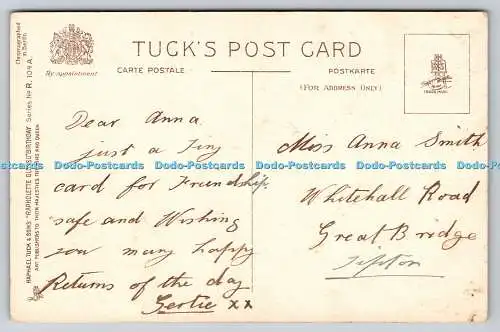 TUCK'S POST CARD
CARTE POSTALE
POSTKARTE
(FOR ADDRESS ONLY)
By appointment
Chromographed
in Berlin
RAPHAEL TUCK & SONS' "RAPHOLETTE GLOSSO" BIRTHDAY Series No R. 104 A.
ART PUBLISHERS TO THEIR MAJESTIES THE KING AND QUEEN
TRADE MARK
Dear Anna
just a Tiny
card for Friendship
safe and Wishing
you many happy
Returns of the day
Gertie xx
Miss Anna Smith
Whitehall Road
Great Bridge
Tipton
Dodo-Postcards Dodo-Postcards Dodo-Postcards Dodo-Postcards Dodo-Postcards